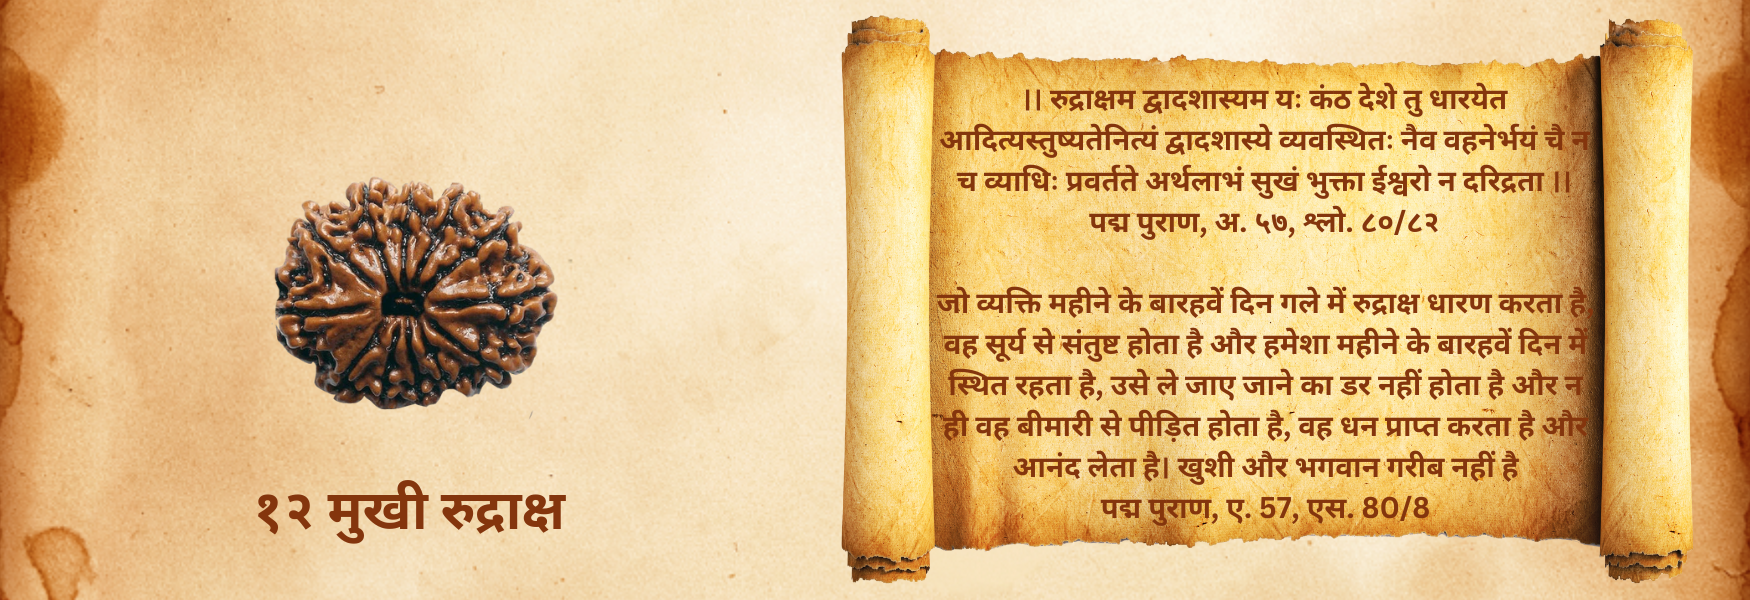 १२ मुखी रुद्राक्ष
।। रुद्राक्षम द्वादशास्यम यः कंठ देशे तु धारयेत
आदित्यस्तुष्यतेनित्यं द्वादशास्ये व्यवस्थितः नैव वहनेर्भयं चै न
च व्याधिः प्रवर्तते अर्थलाभं सुखं भुक्ता ईश्वरो न दरिद्रता ।।
पद्म पुराण, अ. ५७, श्लो. ८०/८२
जो व्यक्ति महीने के बारहवें दिन गले में रुद्राक्ष धारण करता है,
वह सूर्य से संतुष्ट होता है और हमेशा महीने के बारहवें दिन में
स्थित रहता है, उसे ले जाए जाने का डर नहीं होता है और न
ही वह बीमारी से पीड़ित होता है, वह धन प्राप्त करता है और
आनंद लेता है। खुशी और भगवान गरीब नहीं है
पद्म पुराण, ए. 57, एस. 80/8